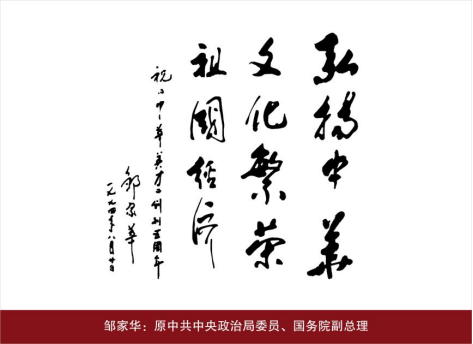 弘揚中華
文化繁荣
祖國经济
祝《中華英才》创刊五周年
邹家華
一九九四年八月廿日
邹家华：原中共中央政治局委员、国务院副总理